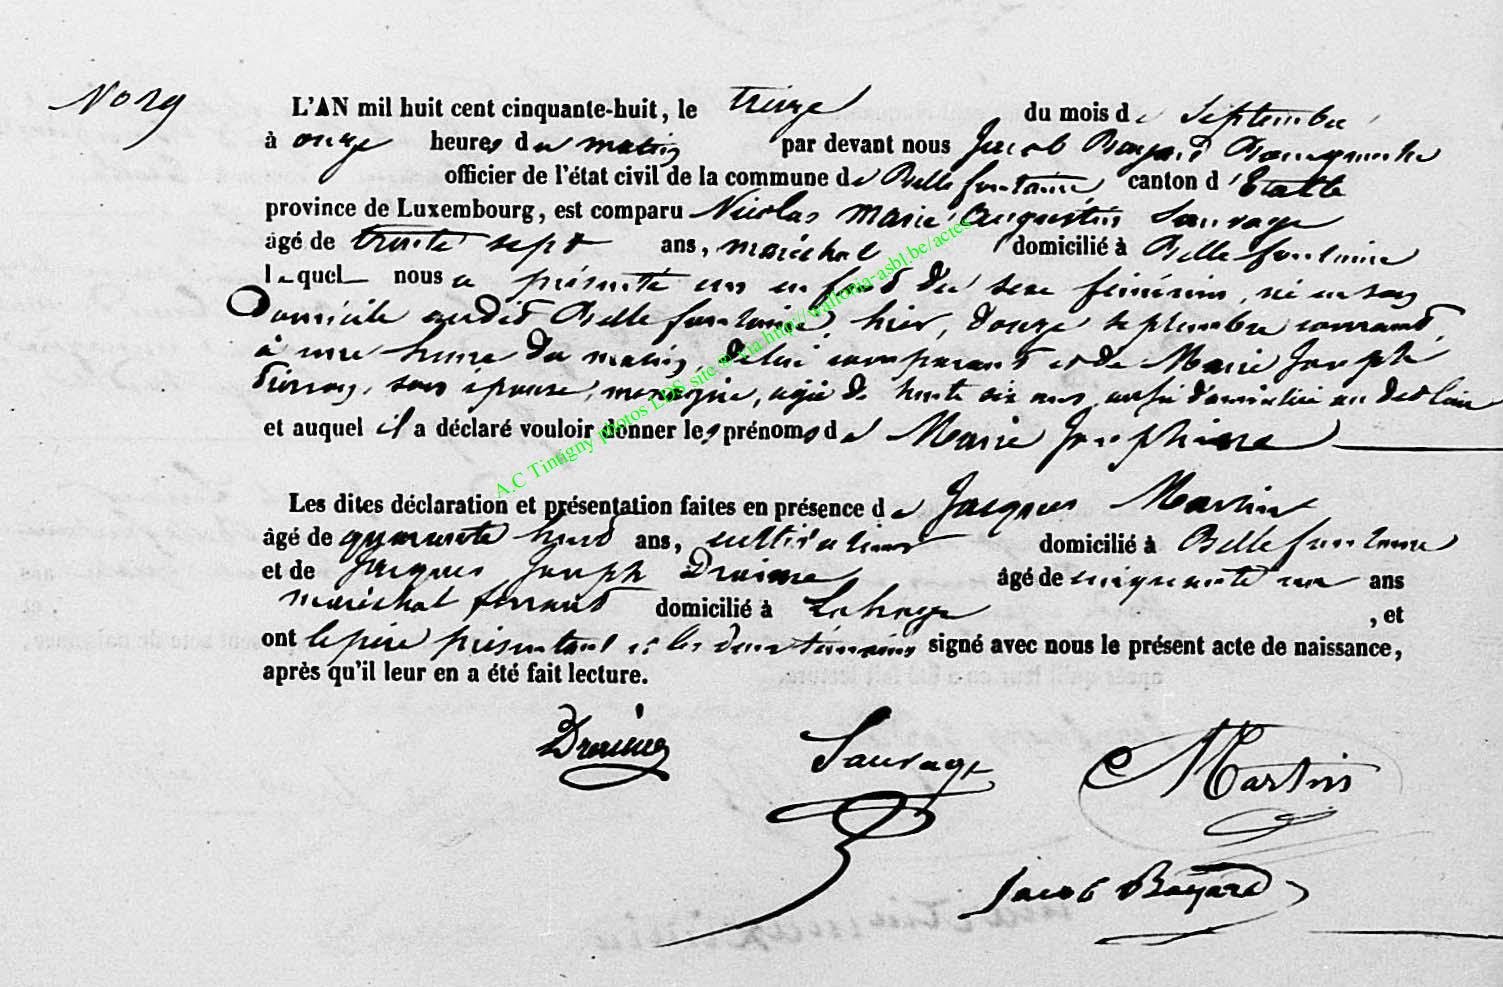 No 29
L'AN mil huit cent cinquante-huit, le treize du mois de Septembre
à onze heures du matin par devant nous Jacob Bayard Bourgmestre
officier de l'état civil de la commune de Bellefontaine canton d'Etalle
province de Luxembourg, est comparu Nicolas Marie Augustin Sauvage
âgé de trente sept ans, maréchal domicilié à Bellefontaine
lequel nous a présenté un enfant du sexe féminin, né en son
Domicile audit Bellefontaine, hier, douze septembre courant,
à une heure du matin, de lui comparant et de Marie Joseph
son épouse, ménagère, agée de trente six ans, aussi domiciliée au dit lieu
et auquel il a déclaré vouloir donner les prénoms de Marie Joséphine
Les dites déclaration et présentation faites en présence de Jacques Martin
âgé de quarante huit ans, cultivateur domicilié à Bellefontaine
et de Jacques Joseph Droisne âgé de cinquante un ans
maréchal ferrant domicilié à Lahage , et
ont le père présentant et les deux témoins signé avec nous le présent acte de naissance,
après qu'il leur en a été fait lecture.
Sauvage Martin
Jacob Bayard
A.C Tintigny photos LDS site @ via http://wallonia-asbl.be/actes